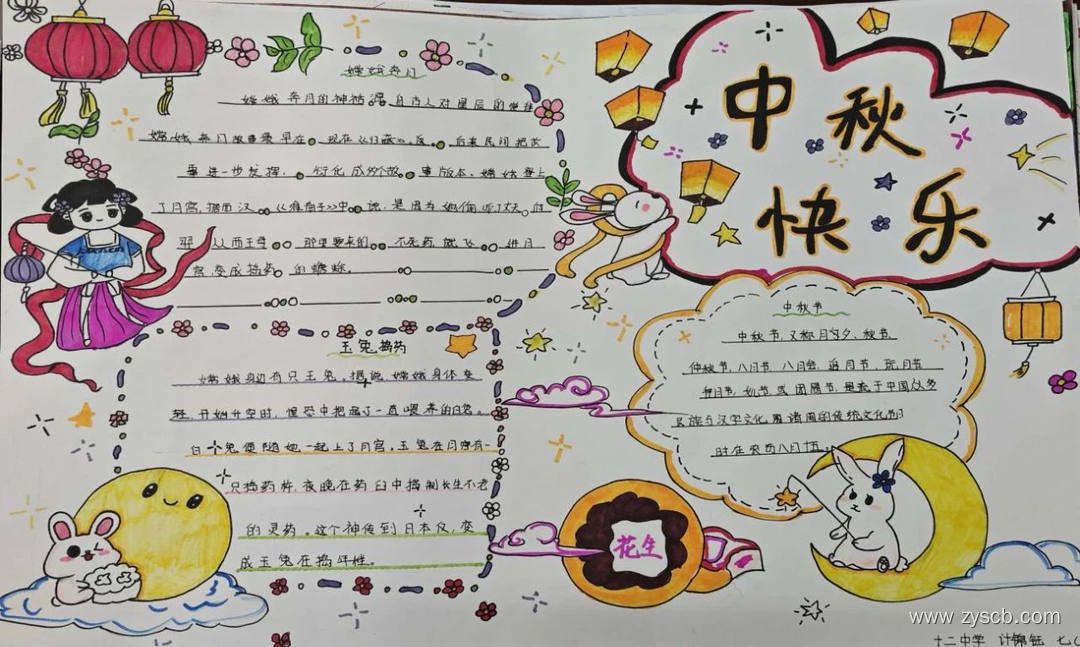 中秋
快乐
嫦娥奔月
嫦娥奔月的神话源自古人对星辰的崇拜
嫦娥奔月故事最早在 现在《归藏》反 后来民间把故
事进一步发挥, 衍化成多个故 事版本。嫦娥登上
了月宫,据西汉 《淮南子》中 说:是因为她偷吃了丈夫 后
羿 从西王母 那里要来的 不死药 就飞 进月
宫,变成捣药 的蟾蜍。
玉兔捣药
嫦娥身边有只玉兔。据说,嫦娥身体变
轻,开始升空时,惶恐中抱起了一直喂养的白兔。
白兔便随她一起上了月宫,玉兔在月宫有一
只捣药杵,夜晚在药臼中捣制长生不老
的灵药。这个神传到日本后,变
成玉兔在捣年糕。
中秋节
中秋节,又称月夕、秋节、
仲秋节、八月节、八月会、追月节、玩月节
拜月节、女儿节或团圆节,是流于中国众多
民族与汉字文化圈诸国的传统文化节
时在农历八月十五。
花生
www.zyscb.com
十二中学 计锦钰 七(